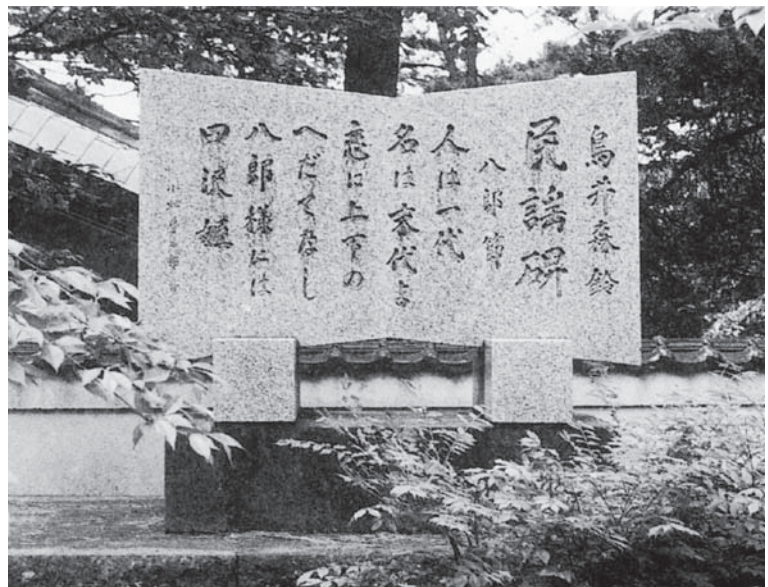 鳥井森鈴
民謡碑
八郎節
人は一代
名は末代よ
恋に上下の
へだてなし
八郎様には
田沢姫